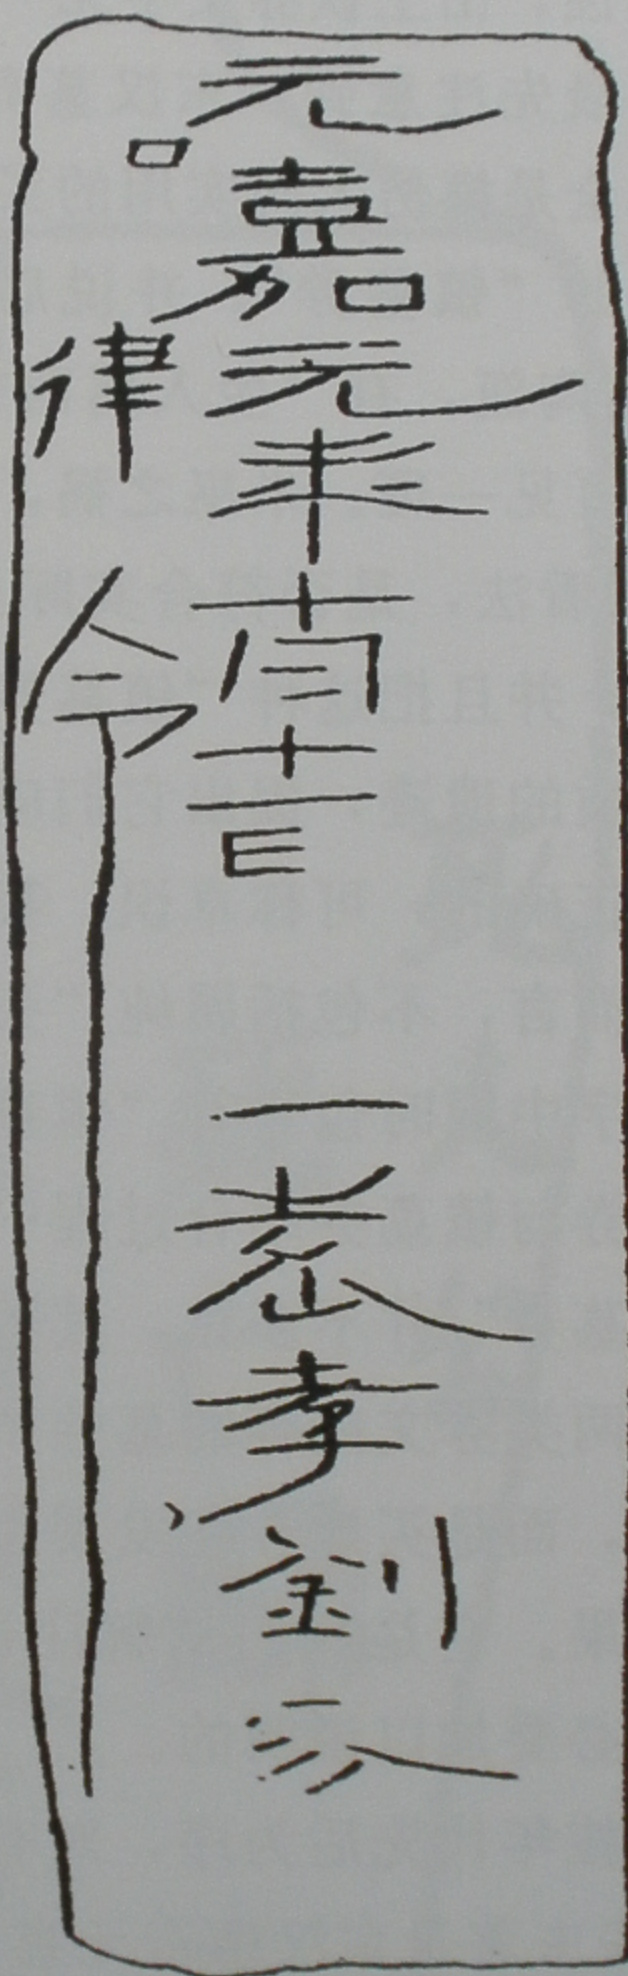 元嘉元年十月十一日 一 孝劉
口律令